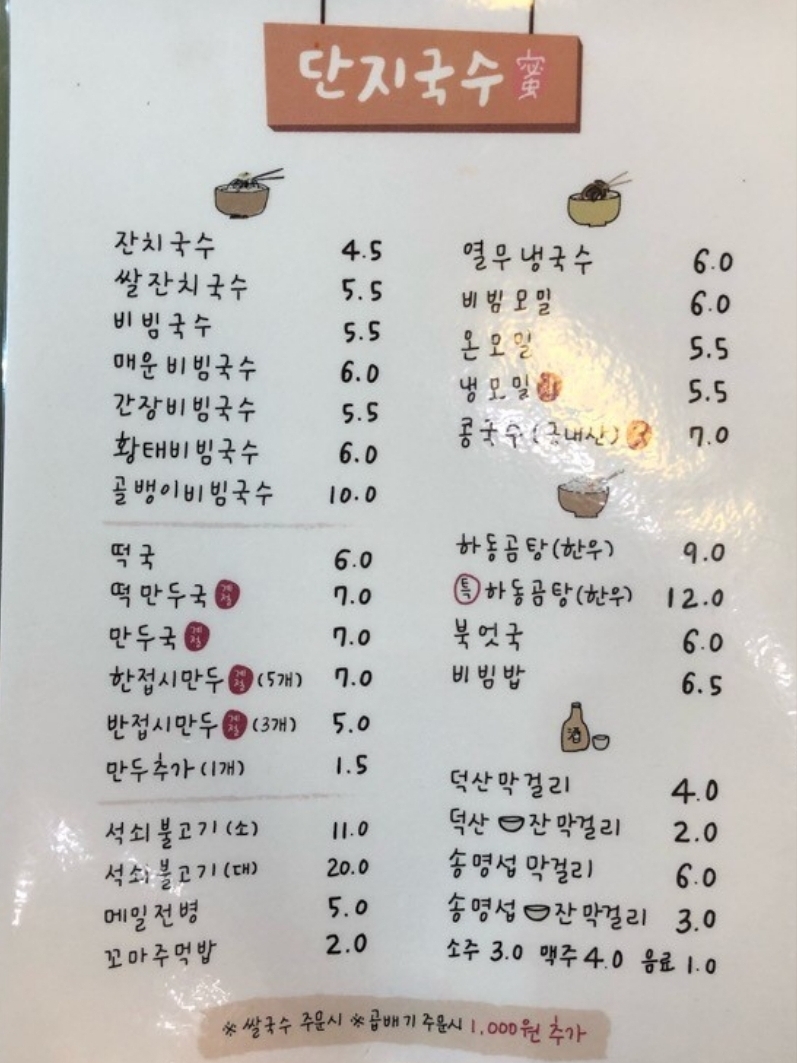 단지국수 蜜
잔치국수 4.5
쌀잔치국수 5.5
비빔국수 5.5
매운비빔국수 6.0
간장비빔국수 5.5
황태비빔국수 6.0
골뱅이비빔국수 10.0
떡국 6.0
떡만두국 계절 7.0
만두국 계절 7.0
한접시만두 계절 (5개) 7.0
반접시만두 계절 (3개) 5.0
만두추가 (1개) 1.5
석쇠불고기 (소) 11.0
석쇠불고기 (대) 20.0
메밀전병 5.0
꼬마주먹밥 2.0
열무냉국수 6.0
비빔모밀 6.0
온모밀 5.5
냉모밀 5.5
콩국수 (국내산) 7.0
하동곰탕(한우) 9.0
특 하동곰탕(한우) 12.0
북엇국 6.0
비빔밥 6.5
酒
덕산막걸리 4.0
덕산 잔막걸리 2.0
송명섭 막걸리 6.0
송명섭 잔막걸리 3.0
소주 3.0 맥주 4.0 음료 1.0
※ 쌀국수 주문시 ※ 곱배기 주문시 1,000원 추가